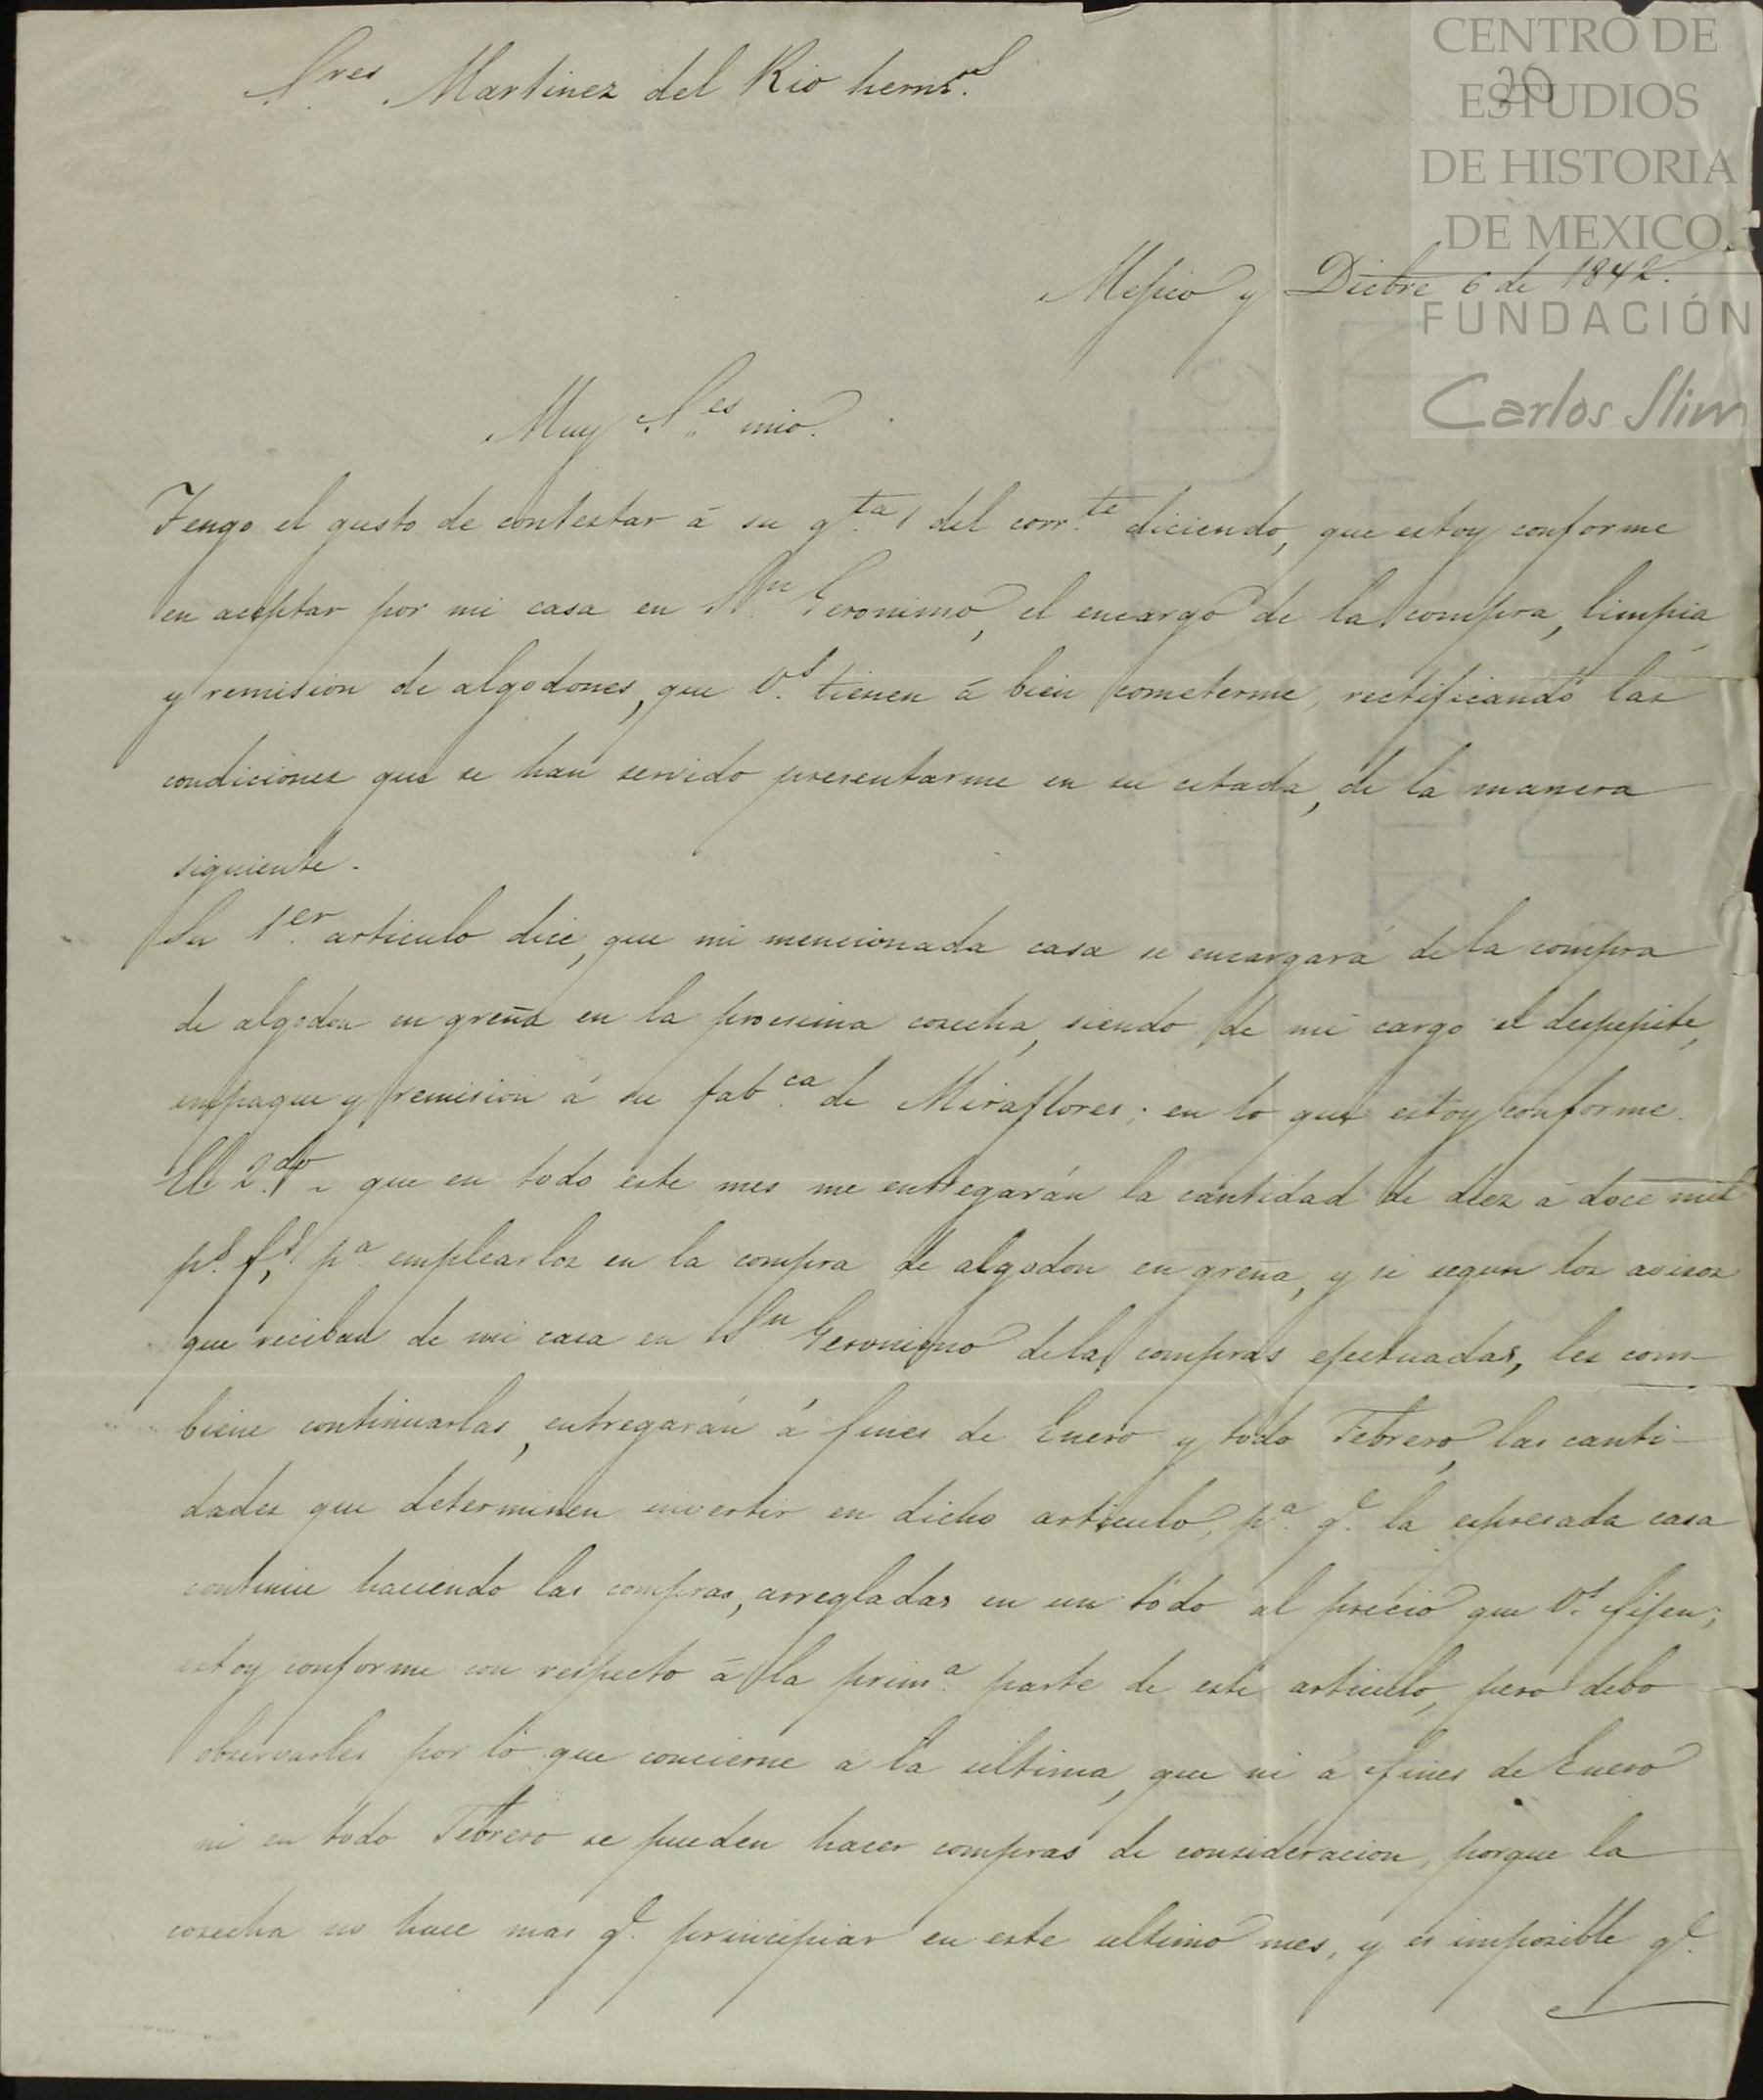 Sres Martinez del Rio herms.
CENTRO DE
ESTUDIOS
DE HISTORIA
DE MEXICO.
20
Mejico y Dicbre 6 de 1842.
FUNDACIÓN
Carlos Slim
Muy Sres mio.
Tengo el gusto de contestar á su gta 1 del corr.te diciendo, que estoy conforme
en aceptar por mi casa en Sn Geronimo, el encargo de la compra, limpia
y remision de algodones, que V.s tienen á bien cometerme, rectificando las
condiciones que se han servido presentarme en su citada, de la manera
siguiente.
Su 1.er articulo dice, que mi mencionada casa se encargará de la compra
de algodon en greña en la procsima cosecha, siendo de mi cargo el despepite,
empaque y remision á su fab.ca de Miraflores; en lo que estoy conforme.
El 2.do que en todo este mes me entregarán la cantidad de diez á doce mil
p.s f.s p.a emplearlos en la compra de algodon en greña, y si segun los avisos
que reciban de mi casa en Sn Geronimo de las compras efectuadas, les com-
biene continuarlas, entregarán á fines de Enero y todo Febrero, las canti-
dades que determinen invertir en dicho articulo, p.a q.e la espresada casa
continue haciendo las compras, arregladas en un todo al precio que V.s fijen;
estoy conforme con respecto á la prim.a parte de este articulo, pero debo
observarles por lo que concierne á la ultima, que ni á fines de Enero
ni en todo Febrero se pueden hacer compras de consideracion, porque la
cosecha no hace mas q.e principiar en este ultimo mes, y es imposible q.e